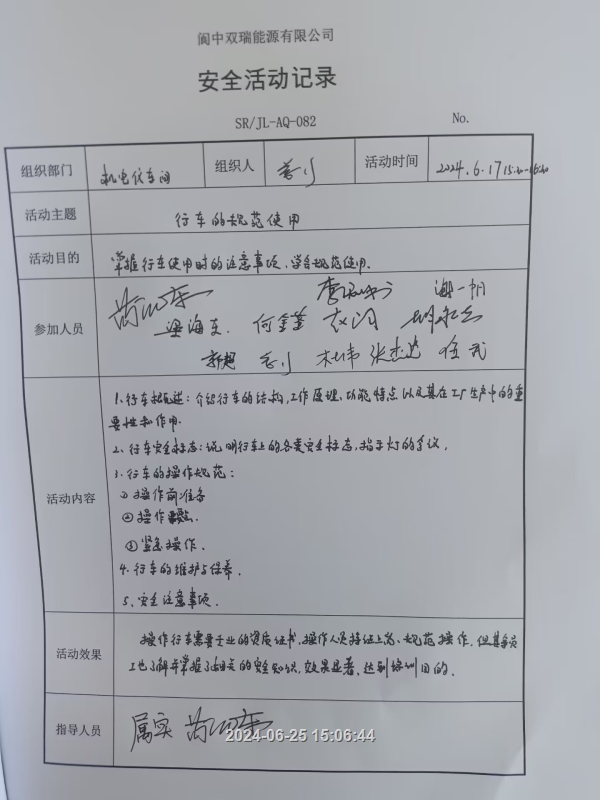 阆中双瑞能源有限公司
安全活动记录
SR/JL-AQ-082 No.
组织部门 机电仪车间 组织人 活动时间 2024.6.17
活动主题 行车的规范使用
活动目的 掌握行车使用时的注意事项、学会规范使用.
参加人员
梁海东. 何金蓬
张杰 伍武
活动内容
1、行车概述：介绍行车的结构,工作原理、功能特点以及其在工厂生产中的重
要性和作用.
2、行车安全标志：说明行车上的各类安全标志,指示灯的含义.
3、行车的操作规范：
①操作前准备
②操作
③紧急操作.
4、行车的维护与保养.
5、安全注意事项.
活动效果 操作行车需要专业的资质证书,操作人员持证上岗、规范操作.但其余员
工也了解并掌握了相关的安全知识,效果显著,达到培训目的.
指导人员 属实
2024-06-25 15:06:44